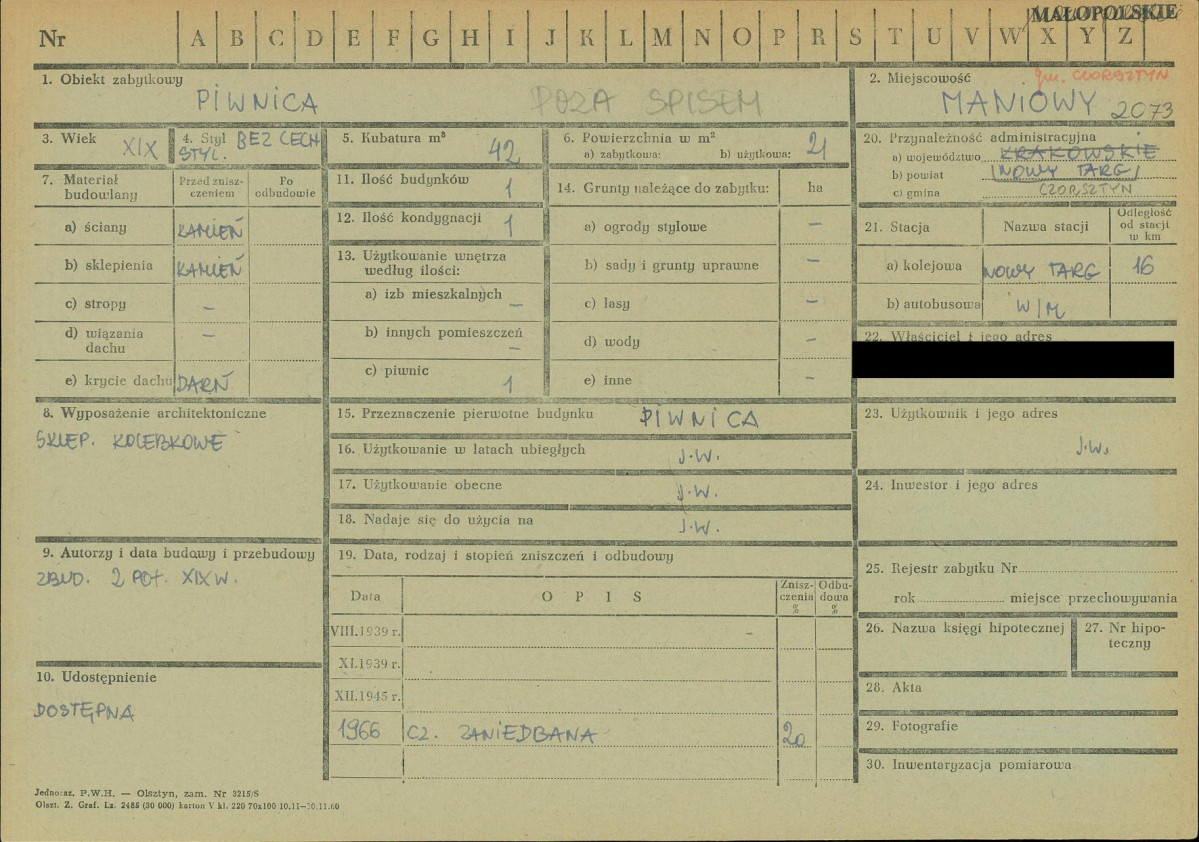 MAŁOPOLSKIE
Nr A B C D E F G H I J K L M N O P R S T U V W X Y Z
1. Obiekt zabytkowy
PIWNICA
POZA SPISEM
2. Miejscowość
gm. CZORSZTYN
MANIOWY 2073
3. Wiek
XIX
4. Styl BEZ CECH
STYL.
5. Kubatura m³
42
6. Powierzchnia w m²
a) zabytkowa: b) użytkowa: 21
20. Przynależność administracyjna
a) województwo KRAKOWSKIE
b) powiat NOWY TARG
c) gmina CZORSZTYN
7. Materiał budowlany
Przed znisz-
czeniem
Po
odbudowie
a) ściany KAMIEŃ
b) sklepienia KAMIEŃ
c) stropy –
d) wiązania
dachu –
e) krycie dachu DARŃ
11. Ilość budynków 1
12. Ilość kondygnacji 1
13. Użytkowanie wnętrza
według ilości:
a) izb mieszkalnych –
b) innych pomieszczeń –
c) piwnic 1
14. Grunty należące do zabytku: ha
a) ogrody stylowe –
b) sady i grunty uprawne –
c) lasy –
d) wody –
e) inne –
21. Stacja Nazwa stacji Odległość
od stacji
w km
a) kolejowa NOWY TARG 16
b) autobusowa W/M
22. Właściciel i jego adres
8. Wyposażenie architektoniczne
SKLEP. KOLEBKOWE
15. Przeznaczenie pierwotne budynku PIWNICA
16. Użytkowanie w latach ubiegłych J.W.
17. Użytkowanie obecne J.W.
18. Nadaje się do użycia na J.W.
23. Użytkownik i jego adres
J.W.
24. Inwestor i jego adres
9. Autorzy i data budowy i przebudowy
ZBUD. 2 POŁ. XIX W.
19. Data, rodzaj i stopień zniszczeń i odbudowy
Data OPIS Znisz-
czenia
%
Odbu-
dowa
%
VIII.1939 r. –
XI.1939 r.
XII.1945 r.
1966 CZ. ZANIEDBANA 20
25. Rejestr zabytku Nr
rok miejsce przechowywania
26. Nazwa księgi hipotecznej
27. Nr hipo-
teczny
10. Udostępnienie
DOSTĘPNA
28. Akta
29. Fotografie
30. Inwentaryzacja pomiarowa
Jednoraz. P.W.H. — Olsztyn, zam. Nr 3215/S
Olszt. Z. Graf. Lz. 2485 (30 000) karton V kl. 220 70x100 10.11—30.11.60